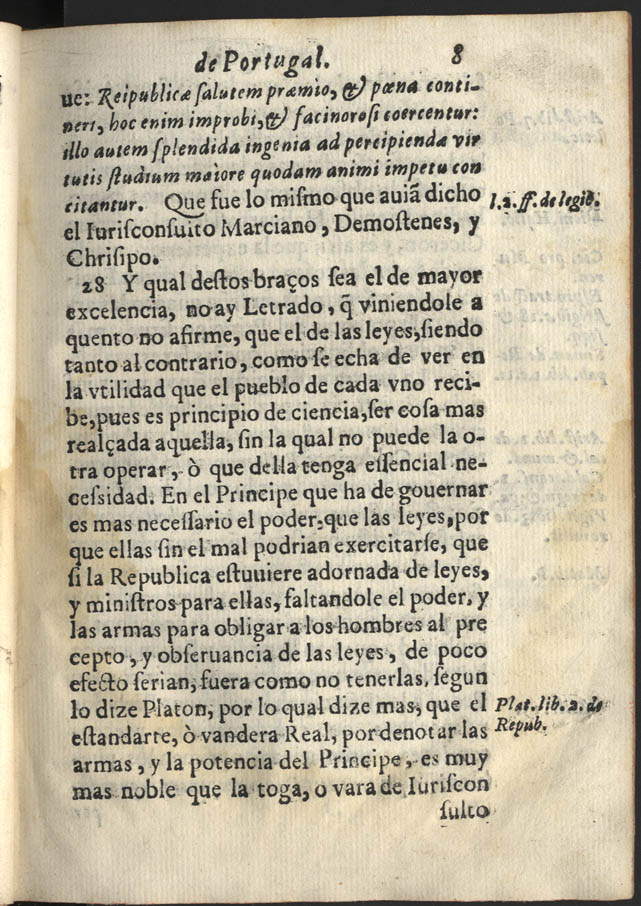 de Portugal. 8
ue: Reipublicæ ſalutem præmio, & pœna conti-
neri, hoc enim improbi, & facinoroſi coercentur:
illo autem ſplendida ingenia ad percipiendæ vir
tutis ſtudium maiore quodam animi impetu con
citantur. Que fue lo miſmo que auiã dicho
l. 2. ff. de legib.
el Iuriſconſulto Marciano, Demoſtenes, y
Chriſipo.
28 Y qual deſtos braços ſea el de mayor
excelencia, no ay Letrado, q̃ viniendole a
quento no afirme, que el de las leyes, ſiendo
tanto al contrario, como ſe echa de ver en
la vtilidad que el pueblo de cada vno reci-
be, pues es principio de ciencia, ſer coſa mas
realçada aquella, ſin la qual no puede la o-
tra operar, ò que della tenga eſſencial ne-
ceſsidad. En el Principe que ha de gouernar
es mas neceſſario el poder, que las leyes, por
que ellas ſin el mal podrian exercitarſe, que
ſi la Republica eſtuuiere adornada de leyes,
y miniſtros para ellas, faltandole el poder, y
las armas para obligar a los hombres al pre
cepto, y obſeruancia de las leyes, de poco
efecto ſerian, fuera como no tenerlas, ſegun
lo dize Platon, por lo qual dize mas, que el
Plat. lib. 2. de
Repub.
eſtandarte, ò vandera Real, por denotar las
armas, y la potencia del Principe, es muy
mas noble que la toga, o vara de Iuriſcon
ſulto